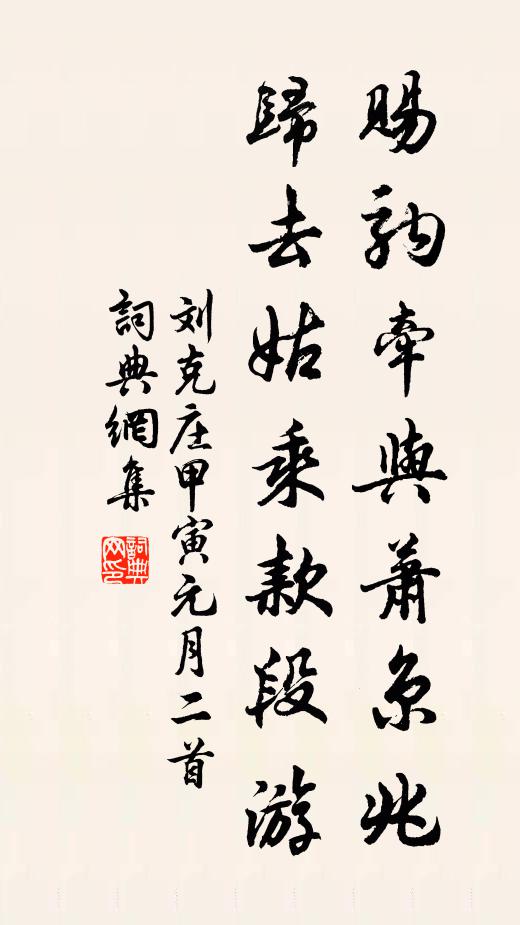 賜駒牽與蕭京兆
歸去姑乘款段游
刘克庄甲寅元月二首
詞典網集
詞典网印